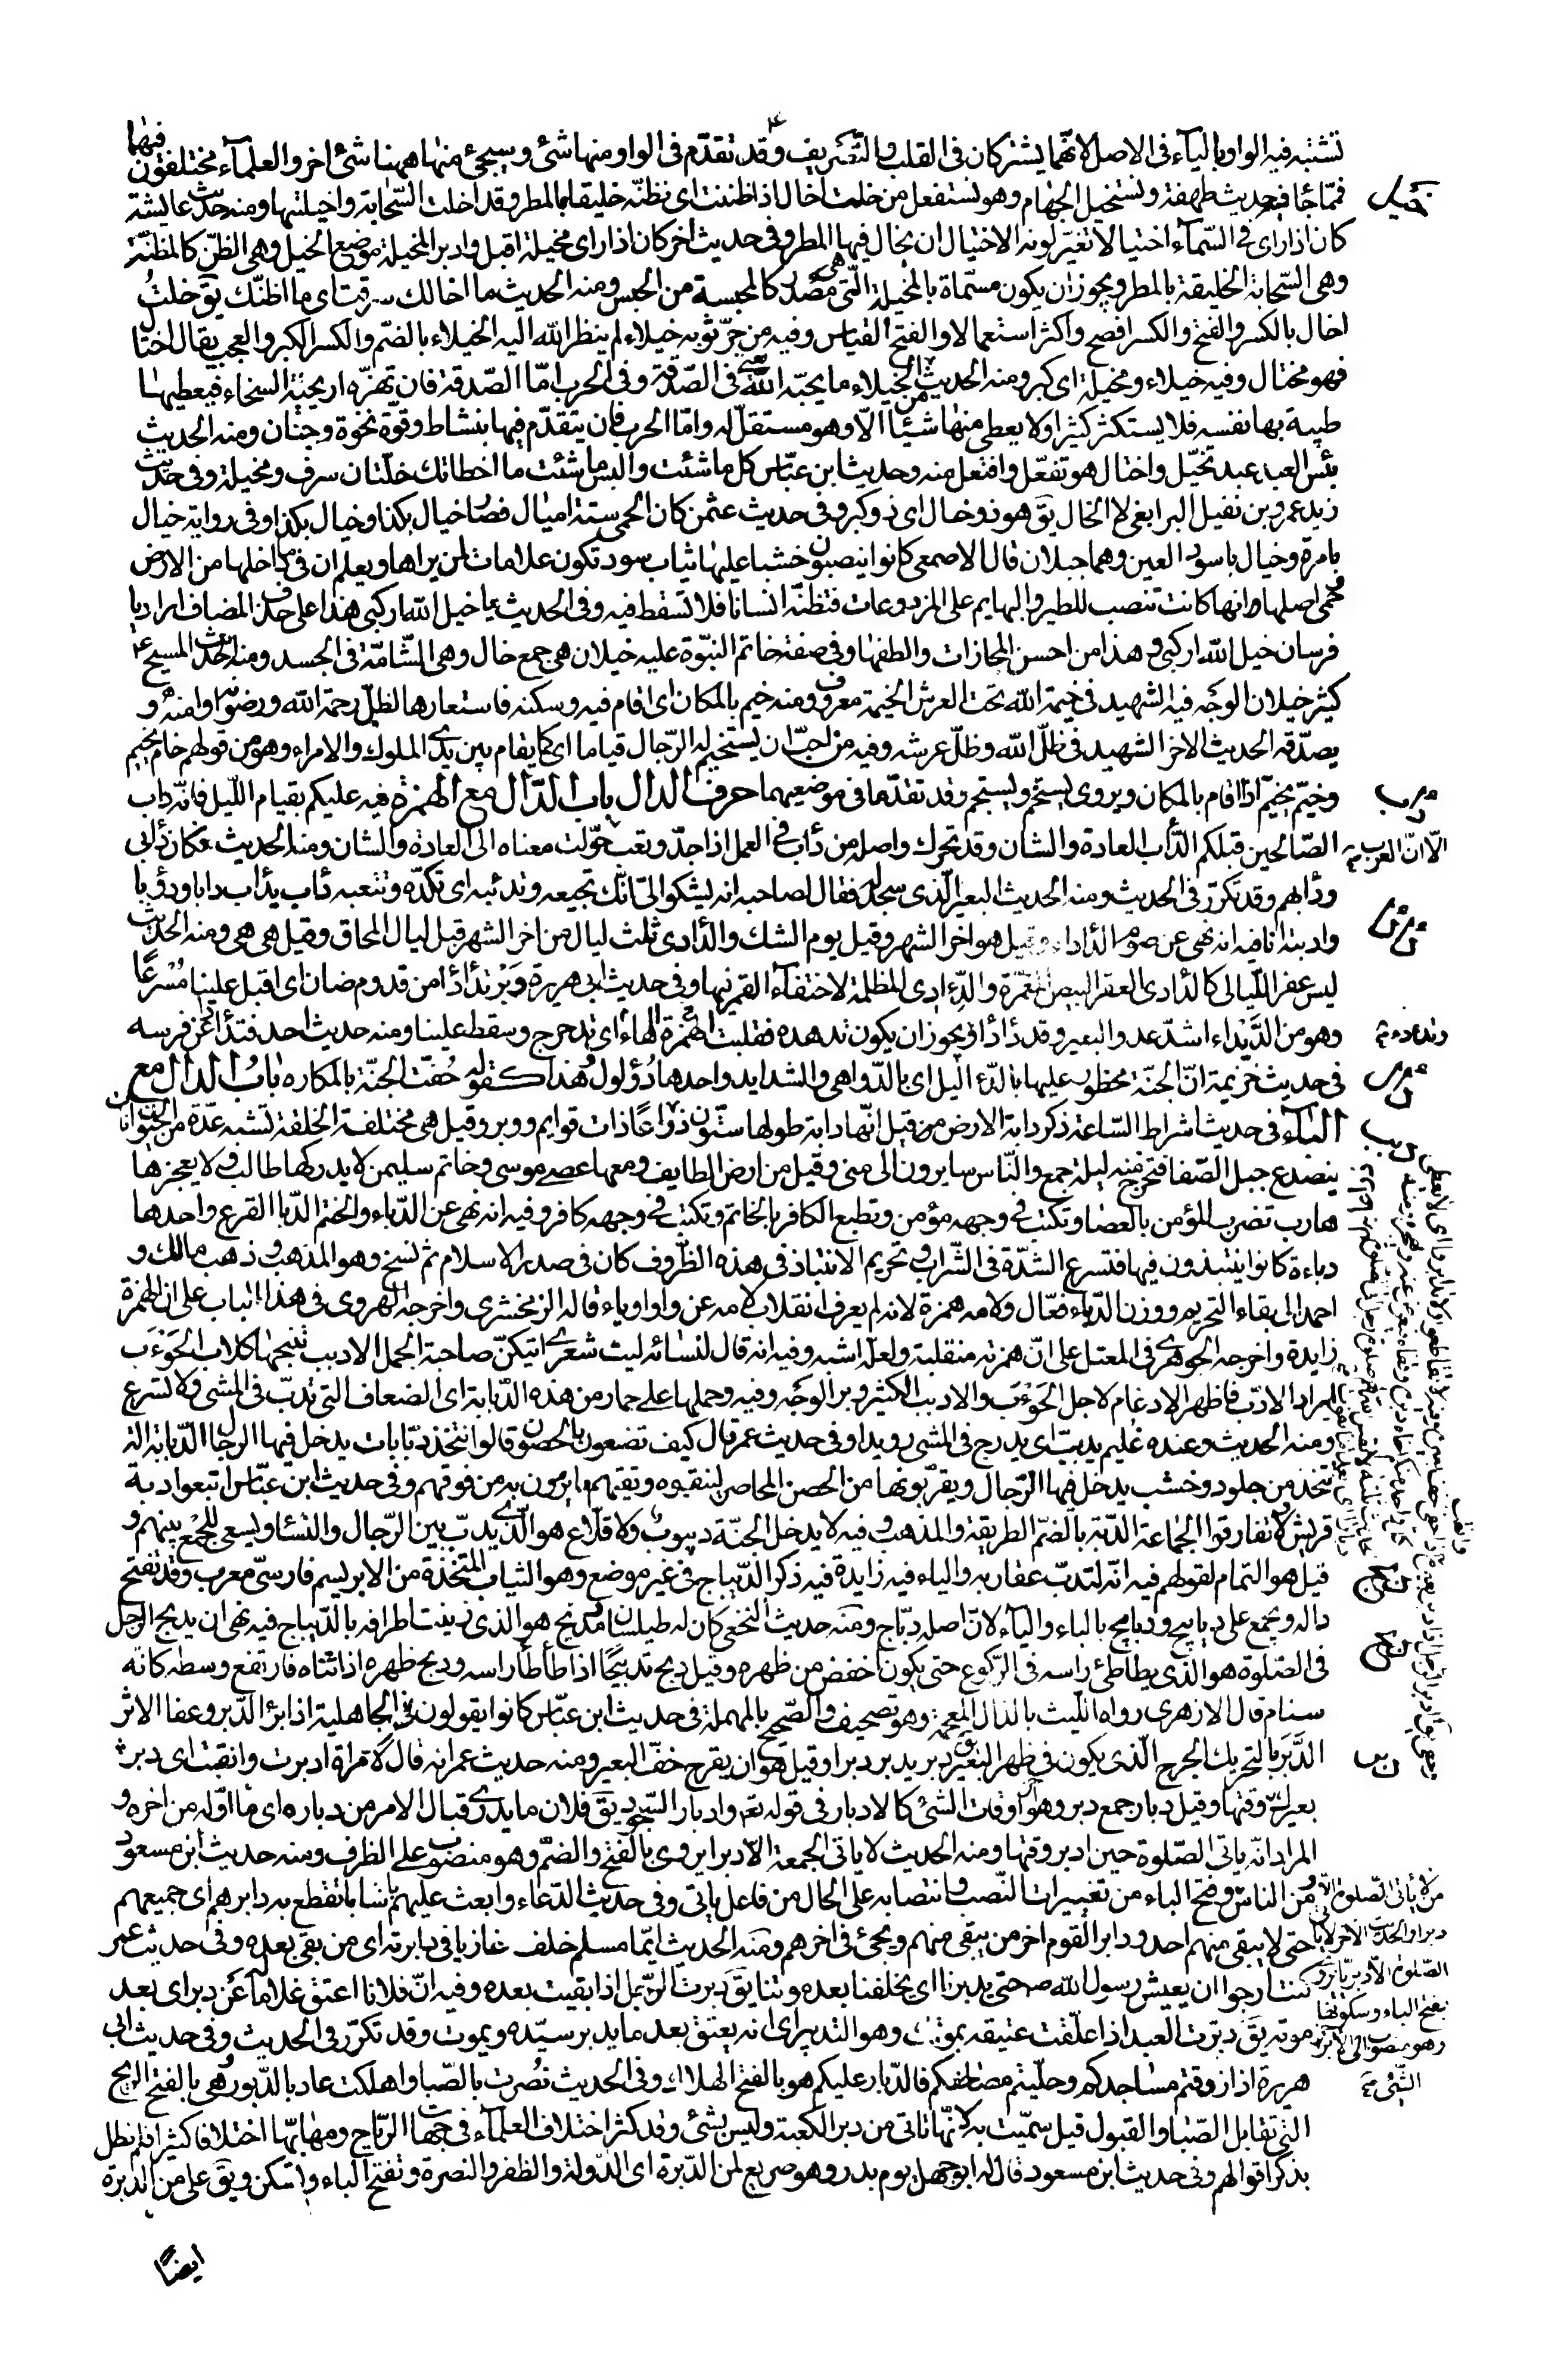 تشتبه فيه الواو بالياء في الاصل لانهما يشتركان في القلب والتصريف وقد تقدم في الواو منها شئ وسيجئ منها ههنا شئ اخر والعلماء مختلفون فيها
خيل
فمما جا فيه حديث طهفة ونستخيل الجهام وهو نستفعل من خلت اخال اذا ظننت اى نظنه خليقا بالمطر وقد اخلت السحابة واخيلتها ومنه حديث عايشة
كان اذا راى في السماء اختيالا تغير لونه الاختيال ان يخال فيها المطر وفي حديث اخر كان اذا راى مخيلة اقبل وادبر المخيلة موضع الخيل وهي الظن كالمظنة
وهي السحابة الخليقة بالمطر ويجوز ان يكون مسماة بالمخيلة التي هي مصدر كالمحبسة من الحبس ومنه الحديث ما اخالك سرقت اى ما اظنك يق خلت
اخال بالكسر والفتح والكسر افصح واكثر استعمالا والفتح القياس وفيه من جر ثوبه خيلاء لم ينظر الله اليه الخيلاء بالضم والكسر الكبر والعجب يقال اختال
فهو مختال وفيه خيلاء ومخيلة اى كبر ومنه الحديث من الخيلاء ما يحبه الله يعنى في الصدقة وفي الحرب اما الصدقة فان تهزه اريحية السخاء فيعطيها
طيبة بها نفسه فلا يستكثر كثيرا ولا يعطى منها شيئا الا وهو مستقل له واما الحرب فان يتقدم فيها بنشاط وقوة نخوة وجنان ومنه الحديث
بئس العبد عبد تخيل واختال هو تفعل وافتعل منه وحديث ابن عباس كل ما شئت والبس ما شئت ما اخطاتك خلتان سرف ومخيلة وفي حديث
زيد عمرو بن نفيل البر ابغى لا الخال يق هو ذو خال اى ذو كبر وفي حديث عثمن كان الحمى ستة اميال فصار خيال بكذا وخيال بكذا وفي رواية خيال
بامرة وخيال باسود العين وهما جبلان قال الاصمعى كانوا ينصبون خشبا عليها ثياب سود تكون علامات لمن يراها ويعلم ان في داخلها من الارض
حمى اصلها وانها كانت تنصب للطير والبهايم على المزروعات فتظنه انسانا فلا تسقط فيه وفي الحديث يا خيل الله اركبى هذا على حذف المضاف اراد يا
فرسان خيل الله اركبى وهذا من احسن المجازات والطفها وفي صفة خاتم النبوة عليه خيلان هي جمع خال وهي الشامة في الجسد ومنه الحديث المسيح ع
كثير خيلان الوجه فيه الشهيد في خيمة الله تحت العرش الخيمة معروف ومنه خيم بالمكان اى اقام فيه وسكنه فاستعارها لظل رحمة الله ورضوانه وامنه و
يصدقه الحديث الاخر الشهيد في ظل الله وظل عرشه وفيه من احب ان يستخيم له الرجال قياما اى كما يقام بين يدى الملوك والامراء وهو من قولهم خام يخيم
وخيم يخيم اذا اقام بالمكان ويروى يستخم ويستجم وقد تقدما في موضعيهما حرف الدال باب الدال مع الهمزة فيه عليكم بقيام الليل فانه داب
داب
الصالحين قبلكم الداب العادة والشان وقد تحرك واصله من داب في العمل اذا جد وتعب حولت معناه الى العادة والشان ومنه الحديث فكان دابى
الا ان العرب
ودابهم وقد تكرر في الحديث ومنه الحديث البعير الذى سجد له فقال لصاحبه انه يشكو الى انك تجيعه وتدئبه اى تكده وتتعبه داب يداب دابا ودؤبا
وادبته انا فيه انه نهى عن صوم الداداء وقيل هو اخر الشهر وقيل يوم الشك والدادى ثلث ليال من اخر الشهر قبل ليال المحاق وقيل هي هي ومنه الحديث
ليس عفر الليالى كالدادى العفر البيض المقمرة والدادى المظلمة لاختفاء القمر فيها وفي حديث ابى هريرة وبر تداداء من قدوم ضان اى اقبل علينا مسرعا
وهو من الديداء اشد عدو البعير وقد داداء ويجوز ان يكون تدهده فقلبت الهمزة الهاء اى تدحرج وسقط علينا ومنه حديث احد فتدادا عن فرسه
في حديث خزيمة ان الجنة محظور عليها بالدءاليل اى بالدواهى والشدايد واحدها دؤلول وهذا كقوله حفت الجنة بالمكاره باب الدال مع
الباء في حديث اشراط الساعة ذكر دابة الارض قيل انها دابة طولها ستون ذراعا ذات قوايم ووبر وقيل هي مختلفة الخلقة تشبه عدة من الحيوانات
دبب
ينصدع جبل الصفا فتخرج منه ليلة جمع والناس سايرون الى منى وقيل من ارض الطايف ومعها عصى موسى وخاتم سليمن لا يدركها طالب ولا يعجزها
هارب تضرب المؤمن بالعصا وتكتب في وجهه مؤمن وتطبع الكافر بالخاتم وتكتب في وجهه كافر وفيه انه نهى عن الدباء والحنتم الدبا القرع واحدها
دباءة كانوا ينتبذون فيها فتسرع الشدة في الشراب وتحريم الانتباذ في هذه الظروف كان في صدر الاسلام ثم نسخ وهو المذهب وذهب مالك و
احمد الى بقاء التحريم ووزن الدباء فعال ولامه همزة لانه لم يعرف انقلاب لامه عن واو او ياء قاله الزمخشرى واخرجه الهروى في هذا الباب على ان الهمزة
زايدة واخرجه الجوهرى في المعتل على ان همزته منقلبة ولعله اشبه وفيه انه قال لنسائه ليت شعرى ايتكن صاحبة الجمل الادبب تنبحها كلاب الحوءب
اراد الادب فاظهر الادغام لاجل الحوءب والادبب الكثير وبر الوجه وفيه وحملها على حمار من هذه الدبابة اى الضعاف التى تدب في المشى ولا تسرع
ومنه الحديث وعنده غليم يدبب اى يدرج في المشى رويدا وفي حديث عمر قال كيف تصنعون بالحصون قالوا نتخذ دبابات يدخل فيها الرجال الدبابة الة
تتخذ من جلود وخشب يدخل فيها الرجال ويقربونها من الحصن المحاصر لينقبوه وتقيهم ما يرمون به من فوقهم وفي حديث ابن عباس اتبعوا دبة
قريش ولا تفارقوا الجماعة الدبة بالضم الطريقة والمذهب وفيه لا يدخل الجنة ديبوب ولا قلاع هو الذى يدب بين الرجال والنساء ويسعى للجمع بينهم و
قيل هو النمام لقولهم فيه انه لتدب عقاربه والياء فيه زايدة فيه ذكر الديباج في غير موضع وهو الثياب المتخذة من الابريسم فارسى معرب وقد تفتح
داله ويجمع على ديابيج ودبابيج بالباء والياء لان اصله دباج ومنه حديث النخعى كان له طيلسان مدبج هو الذى زينت اطرافه بالديباج فيه نهى ان يدبح الرجل
في الصلوة هو الذى يطاطئ راسه في الركوع حتى يكون اخفض من ظهره وقيل دبح تدبيحا اذا طأطأ راسه ودبح ظهره اذا ثناه فارتفع وسطه كانه
سنام قال الازهرى رواه الليث بالذال المعجمة وهو تصحيف والصحيح بالمهملة في حديث ابن عباس كانوا يقولون في الجاهلية اذا برا الدبر وعفا الاثر
الدبر بالتحريك الجرح الذى يكون في ظهر البعير دبر يدبر دبرا وقيل هو ان يقرح خف البعير ومنه حديث عمر انه قال لامراة ادبرت وانقبت اى دبر
بعيرك وقتها وقيل دبار جمع دبر وهو اخر اوقات الشئ كالادبار في قوله تع وادبار السجود يق فلان ما يدرى قبال الامر من دباره اى ما اوله من اخره و
المراد انه ياتى الصلوة حين ادبر وقتها ومنه الحديث لا ياتى الجمعة الا دبرا يروى بالفتح والضم وهو منصوب على الظرف ومنه حديث ابن مسعود
ومن الناس من لا يأتى الصلوة الا
وفتح الباء من تغييرات النصب وانتصابه على الحال من فاعل ياتى وفي حديث الدعاء وابعث عليهم باسا تقطع به دابرهم اى جميعهم
حتى لا يبقى منهم احد ودابر القوم اخر من يبقى منهم ويجئ في اخرهم ومنه الحديث ايما مسلم خلف غازيا في دابرته اى من بقى بعده وفي حديث عمر
كنت ارجوا ان يعيش رسول الله ص حتى يدبرنا اى يخلفنا بعد موتنا يق دبرت الرجل اذا بقيت بعده وفيه ان فلانا اعتق غلاما عن دبر اى بعد
بفتح الباء وسكونها
موته يق دبرت العبد اذا علقت عتقه بموتك وهو التدبير اى انه يعتق بعد ما يدبر سيده ويموت وقد تكرر في الحديث وفي حديث ابى
هريرة اذا زوقتم مساجدكم وحليتم مصاحفكم فالدبار عليكم هو بالفتح الهلاك وفي الحديث نصرت بالصبا واهلكت عاد بالدبور هي بالفتح الريح
التى تقابل الصبا والقبول قيل سميت به لانها تاتى من دبر الكعبة وليس بشئ وقد كثر اختلاف العلماء في جهات الرياح ومهابها اختلافا كثيرا فلم نطل
بذكر اقوالهم وفي حديث ابن مسعود قال له ابو جهل يوم بدر وهو صريع لمن الدبرة اى الدولة والظفر والنصرة وتفتح الباء وتسكن ويق على من الدبرة
ايضا